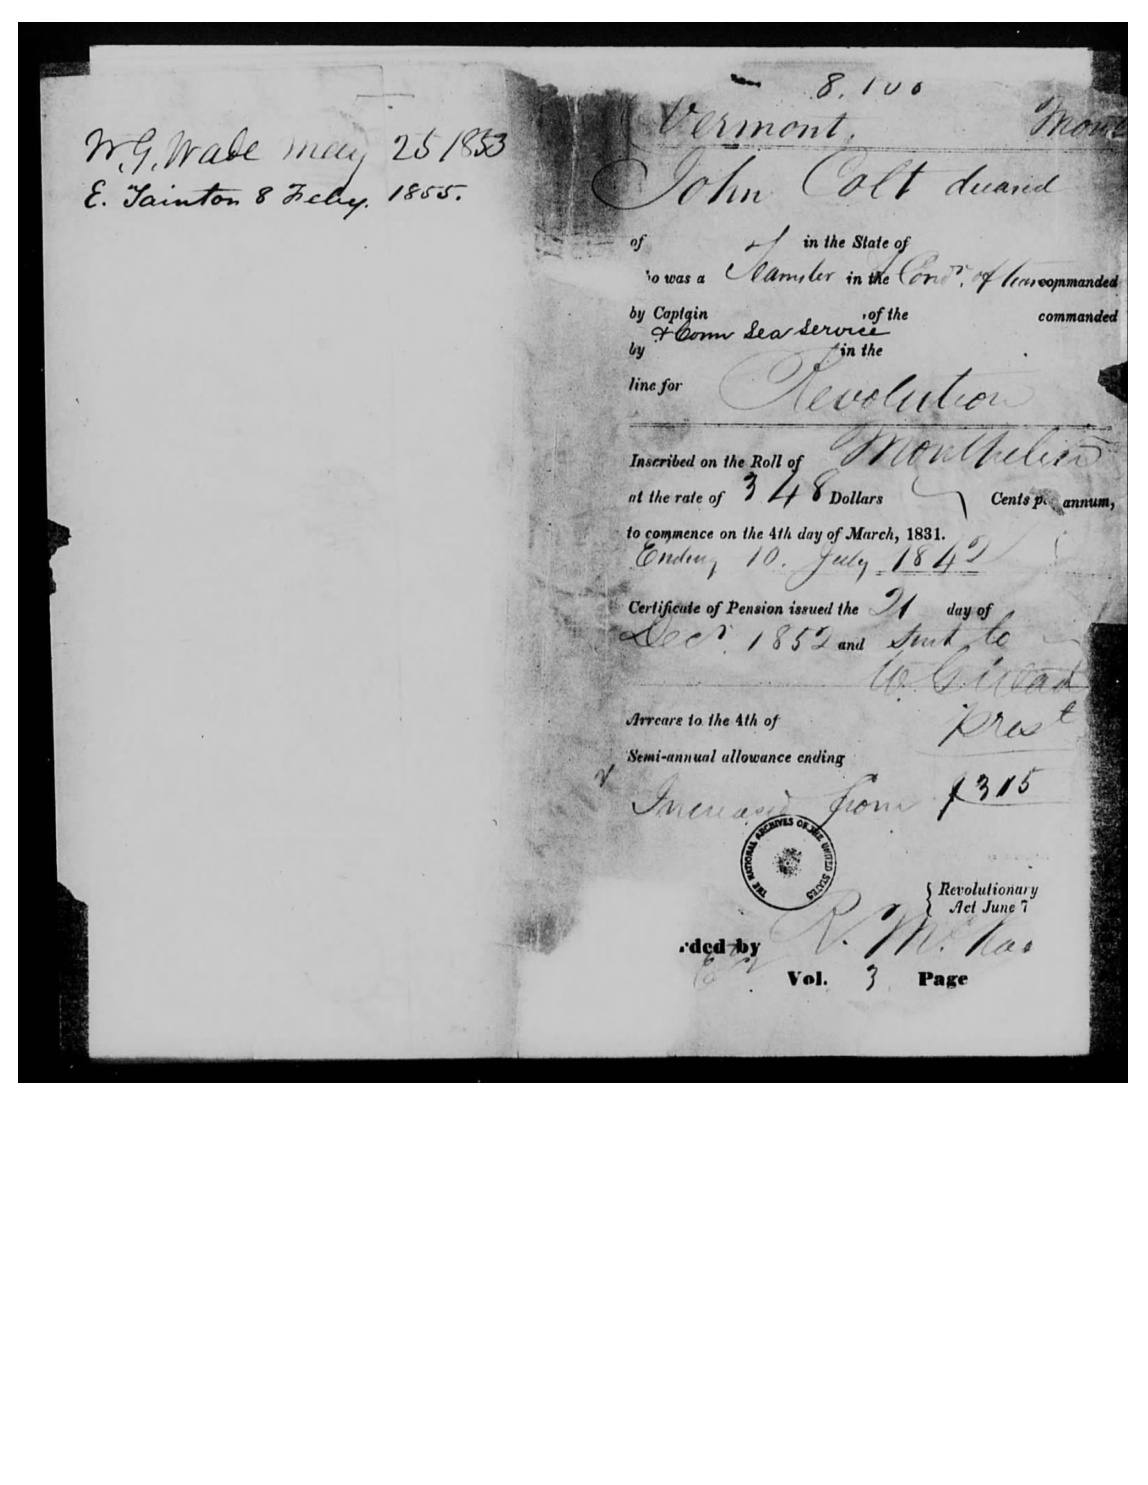 W. G. Wade May 25 1853
E. Tainton 8 Feby. 1855.
8.100
Vermont. Mont
John Colt
of in the State of
o was a Teamster in the Cond<sup>r</sup>. of teams commanded
by Captain of the commanded
& Conn Sea Service
by in the
line for Revolution
Inscribed on the Roll of Montpelier
at the rate of 348 Dollars Cents p annum,
to commence on the 4th day of March, 1831.
Ending 10. July 1842
Certificate of Pension issued the 21 day of
Decr. 1852 and Sent to
W. G. Wade
Prest
Arrears to the 4th of
Semi-annual allowance ending
Increased from $315
THE NATIONAL ARCHIVES OF THE UNITED STATES
{ Revolutionary
Act June 7
ded by R.
Vol. 3 Page